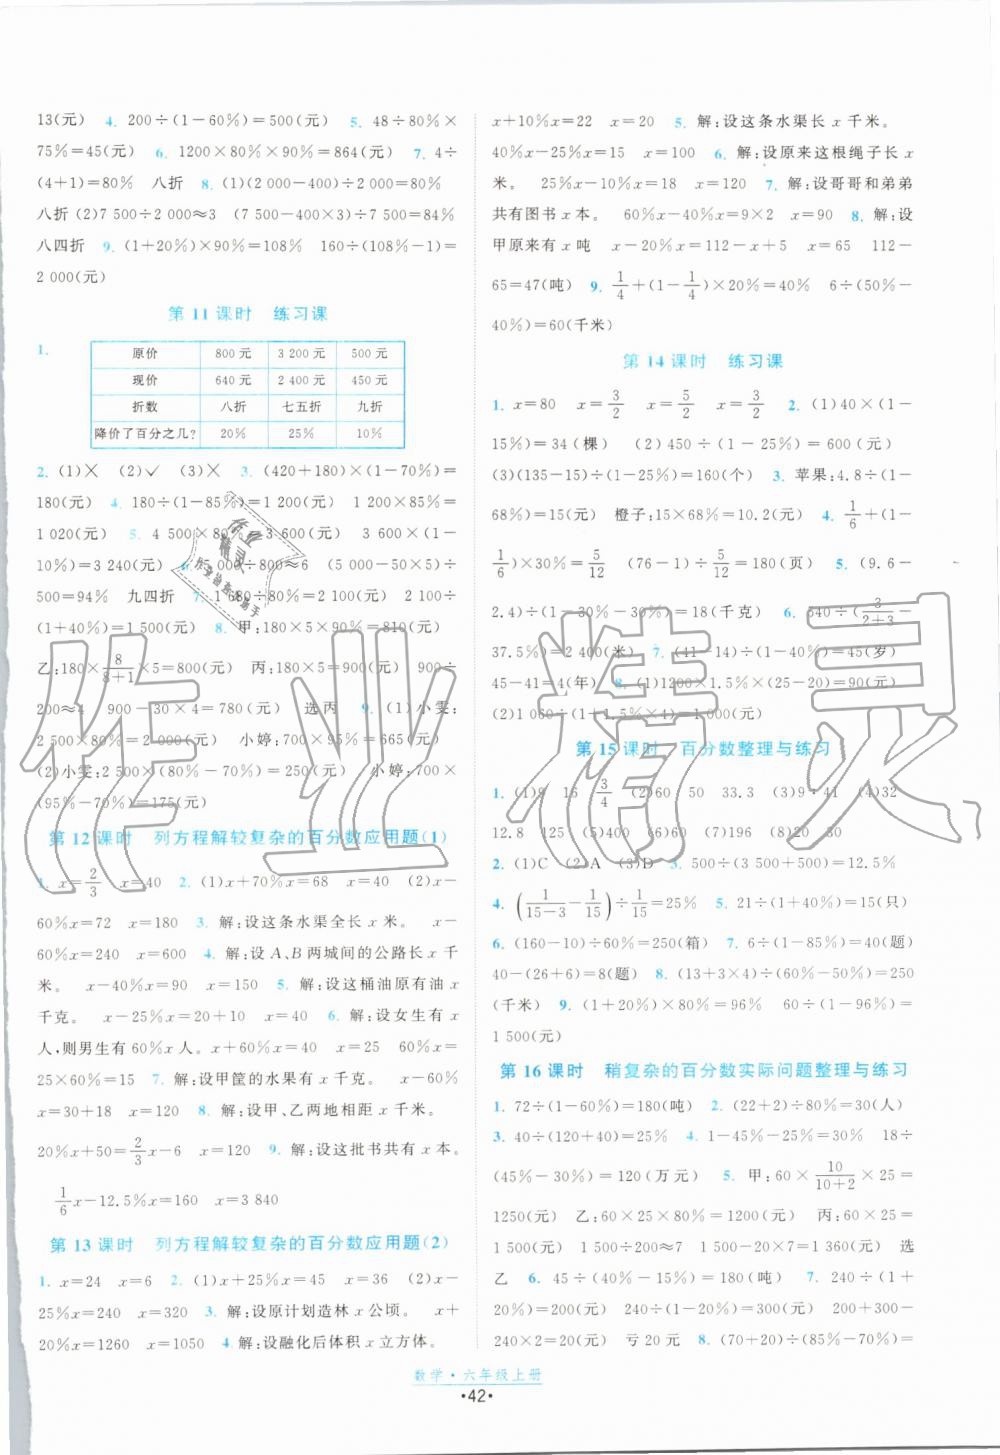 13(元) 4. 200÷(1-60%)=500(元) 5. 48÷80%×
75%=45(元) 6. 1200×80%×90%=864(元) 7. 4÷
(4+1)=80% 八折 8. (1)(2 000-400)÷2 000=80%
八折 (2)7 500÷2 000≈3 (7 500-400×3)÷7 500=84%
八四折 9. (1+20%)×90%=108% 160÷(108%-1)=
2 000(元)
第 11 课时 练习课
1.
原价 800 元 3 200 元 500 元
现价 640 元 2 400 元 450 元
折数 八折 七五折 九折
降价了百分之几? 20% 25% 10%
2. (1)× (2)✓ (3)× 3. (420+180)×(1-70%)=
180(元) 4. 180÷(1-85%)=1 200(元) 1 200×85%=
1 020(元) 5. 4 500×80%=3 600(元) 3 600×(1-
10%)=3 240(元) 6. 5 000÷800≈6 (5 000-50×5)÷
500=94% 九四折 7. 1 680÷80%=2 100(元) 2 100÷
(1+40%)=1 500(元) 8. 甲:180×5×90%=810(元)
乙:180×8/(8+1)×5=800(元) 丙:180×5=900(元) 900÷
200≈4 900-30×4=780(元) 选丙 9. (1)小雯:
2 500×80%=2 000(元) 小婷:700×95%=665(元)
(2)小雯:2 500×(80%-70%)=250(元) 小婷:700×
(95%-70%)=175(元)
第 12 课时 列方程解较复杂的百分数应用题(1)
1. x=2/3 x=40 2. (1)x+70%x=68 x=40 (2)x-
60%x=72 x=180 3. 解:设这条水渠全长 x 米。 x-
60%x=240 x=600 4. 解:设 A、B 两城间的公路长 x 千
米。 x-40%x=90 x=150 5. 解:设这桶油原有油 x
千克。 x-25%x=20+10 x=40 6. 解:设女生有 x
人,则男生有 60%x 人。 x+60%x=40 x=25 60%x=
25×60%=15 7. 解:设甲筐的水果有 x 千克。 x-40%
x=30+18 x=80 8. 解:设甲、乙两地相距 x 千米。
20%x+50=2/3x-6 x=120 9. 解:设这批书共有 x 本。
1/6x-12.5%x=160 x=3 840
第 13 课时 列方程解较复杂的百分数应用题(2)
1. x=24 x=6 2. (1)x+25%x=45 x=36 (2)x-
25%x=240 x=320 3. 解:设原计划造林 x 公顷。 x+
20%x=1260 x=1050 4. 解:设融化后体积 x 立方体。
x+10%x=22 x=20 5. 解:设这条水渠长 x 千米。
40%x-25%x=15 x=100 6. 解:设原来这根绳子长 x
米。 25%x-10%x=18 x=120 7. 解:设哥哥和弟弟
共有图书 x 本。 60%x-40%x=9×2 x=90 8. 解:设
甲原来有 x 吨 x-20%x=112-x+5 x=65 112-
65=47(吨) 9. 1/4+(1-1/4)×20%=40% 6÷(50%-
40%)=60(千米)
第 14 课时 练习课
1. x=80 x=3/2 x=5/2 x=3/2 2. (1)40×(1-
15%)=34(棵) (2) 450 ÷ (1 - 25%) = 600 (元)
(3)(135-15)÷(1-25%)=160(个) 3. 苹果:4.8÷(1-
68%)=15(元) 橙子:15×68%=10.2(元) 4. 1/6+(1-
1/6)×30%=5/12 (76-1)÷5/12=180(页) 5. (9.6-
2.4)÷(1-30%-30%)=18(千克) 6. 540÷(3/(2+3)-
37.5%)=2 400(米) 7. (41-14)÷(1-40%)=45(岁)
45-41=4(年) 8. (1)1200×1.5%×(25-20)=90(元)
(2)1 060÷(1+1.5%×4)=1 000(元)
第 15 课时 百分数整理与练习
1. (1)9 16 3/4 (2)60 50 33.3 (3)9÷41 (4)32
12.8 125 (5)80 (6)60 (7)196 (8)20 30
2. (1)C (2)A (3)D 3. 500÷(3 500+500)=12.5%
4. (1/(15-3)-1/15)÷1/15=25% 5. 21÷(1+40%)=15(只)
6. (160-10)÷60%=250(箱) 7. 6÷(1-85%)=40(题)
40-(26+6)=8(题) 8. (13+3×4)÷(60%-50%)=250
(千米) 9. (1+20%)×80%=96% 60÷(1-96%)=
1 500(元)
第 16 课时 稍复杂的百分数实际问题整理与练习
1. 72÷(1-60%)=180(吨) 2. (22+2)÷80%=30(人)
3. 40÷(120+40)=25% 4. 1-45%-25%=30% 18÷
(45%-30%)=120(万元) 5. 甲:60×10/(10+2)×25=
1250(元) 乙:60×25×80%=1200(元) 丙:60×25=
1 500(元) 1500÷200≈7 1500-40×7=1220(元) 选
乙 6. 45÷(40%-1+80%)=180(吨) 7. 240÷(1+
20%)=200(元) 240÷(1-20%)=300(元) 200+300-
240×2=20(元) 亏 20元 8. (70+20)÷(85%-70%)=
数学·六年级上册
·42·
作业精灵